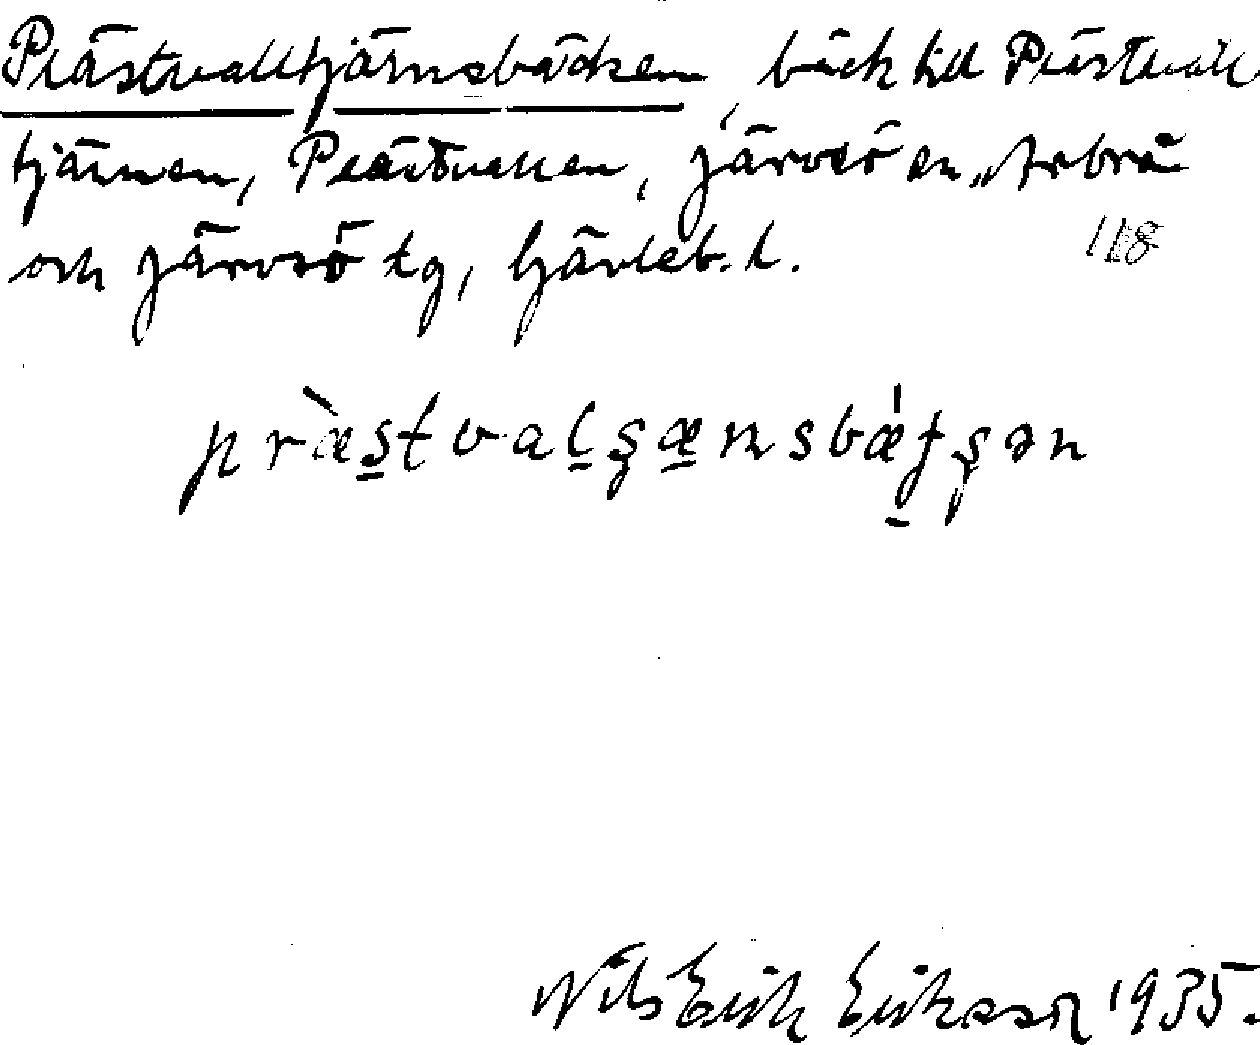 Prästvalltjärnsbäcken, bäck till Prästvall
tjärnen, Prästvallen, Järvsö sn, Arbrå
och Järvsö tg, Gävleb. l.
118
præstvalʂænsbætʂən
Nils Erik Eriksson 1935.